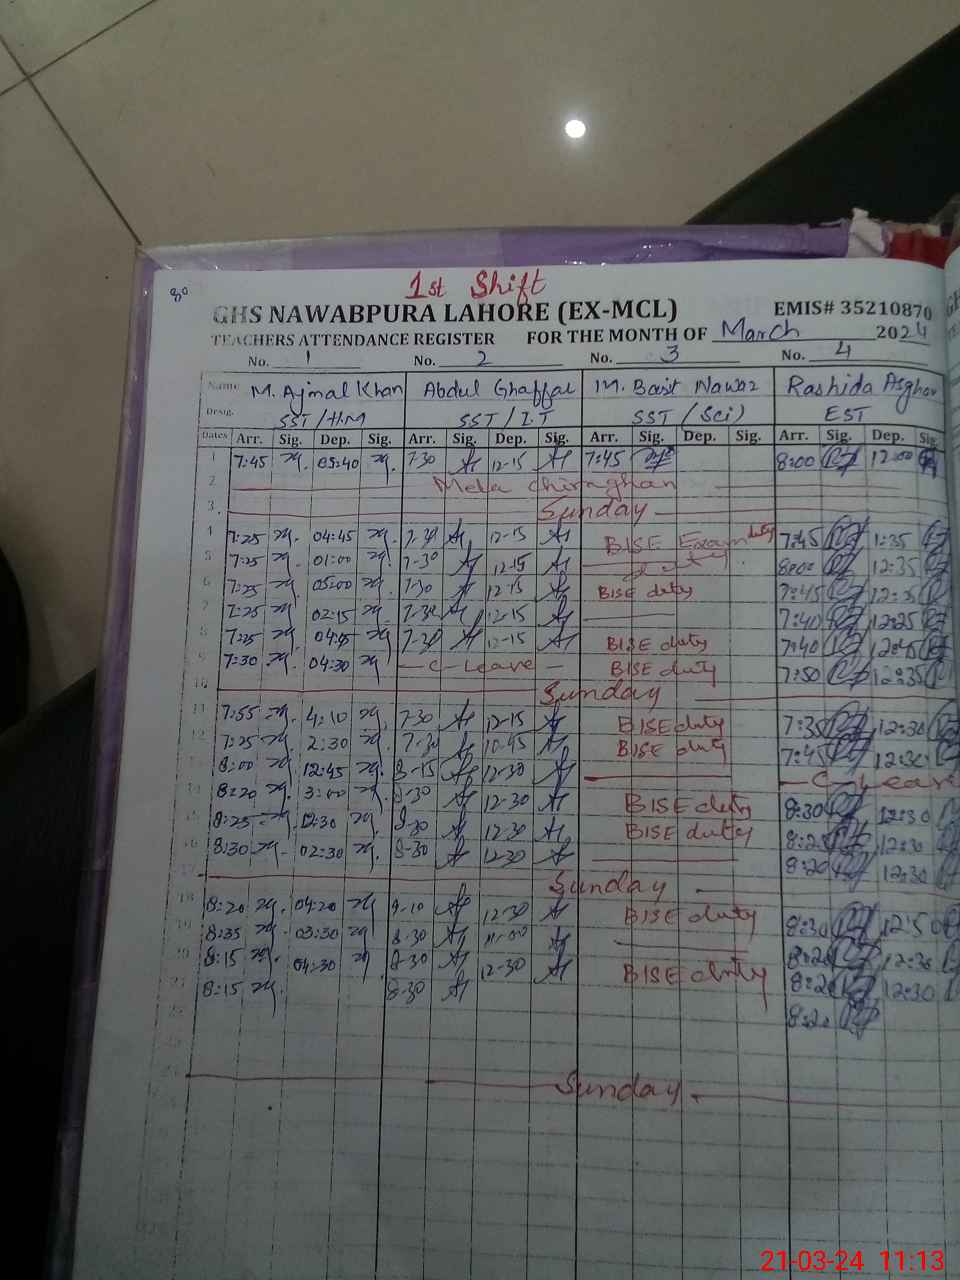 80
1st Shift
GHS NAWABPURA LAHORE (EX-MCL) EMIS# 35210870
TEACHERS ATTENDANCE REGISTER FOR THE MONTH OF March 2024
No. 1 No. 2 No. 3 No. 4
Name M. Ajmal Khan Abdul Ghaffar M. Basit Nawaz Rashida Asghar
Desig. SST/HM SST/I.T SST (Sci) EST
Dates Arr. Sig. Dep. Sig. Arr. Sig. Dep. Sig. Arr. Sig. Dep. Sig. Arr. Sig. Dep. Sig.
1 7:45 05:40 7-30 12-15 7:45 8:00 12:00
2 Mela Chiraghan
3 Sunday
4 7:25 04:45 7-30 12-15 BISE Exam duty 7:45 1:35
5 7:25 01:00 7-30 12-15 8:00 12:35
6 7:25 05:00 7-30 12-15 BISE duty 7:45 12:35
7 7:25 02:15 7-30 12-15 7:40 12:25
8 7:25 7-30 12-15 BISE duty 7:40 12:45
9 7:30 04:30 C-leave BISE duty 7:50 12:35
10 Sunday
11 7:55 4:10 7-30 12-15 BISE duty 7:35 12:30
12 7:25 2:30 7-30 10-45 BISE duty 7:45 12:30
8:00 12:45 8-15 12-30 C-leave
8:20 3:00 8-30 12-30 BISE duty 8:30 12:30
8:25 12:30 8-30 12-30 BISE duty 8:25 12:30
8:30 02:30 8-30 12-30 8:20 12:30
17 Sunday
18 8:20 04:20 9-10 12-30 BISE duty 8:30 12:50
8:35 03:30 8-30 11-00 8:20 12:30
8:15 04:30 8-30 12-30 BISE duty 8:20 12:30
8:15 8-30 8:20
Sunday
21-03-24 11:13